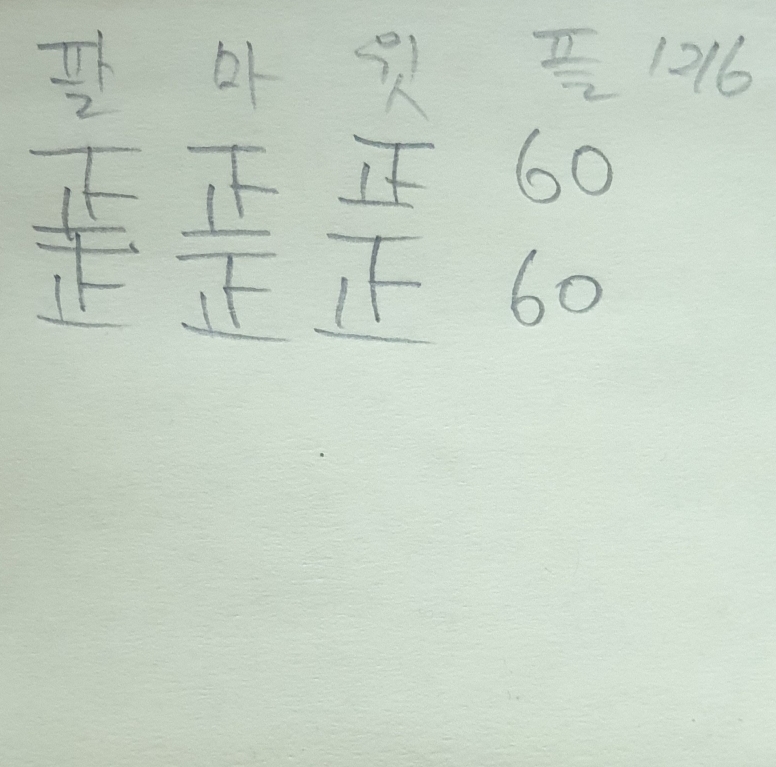 팔 마 윗 플 1216
正 正 正 60
正 正 正 60